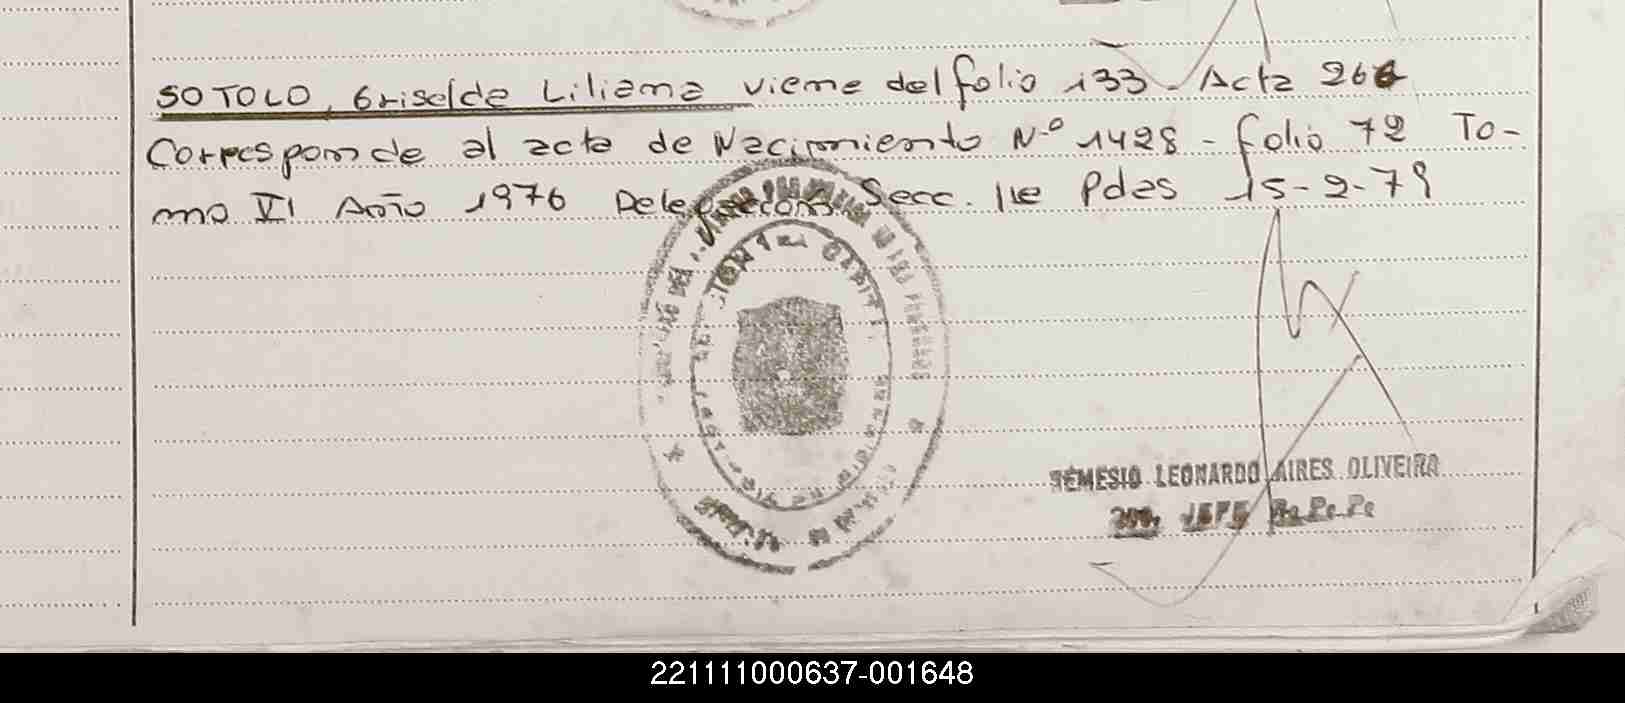 SOTOLO, Griselda Liliana viene del folio 133 - Acta 266
Corresponde al acta de Nacimiento Nº 1428 - folio 72 To-
mo VI Año 1976 Delegacion Secc. 11e Pdas 15-2-79
NEMESIO LEONARDO AIRES OLIVEIRA
JEFE
221111000637-001648